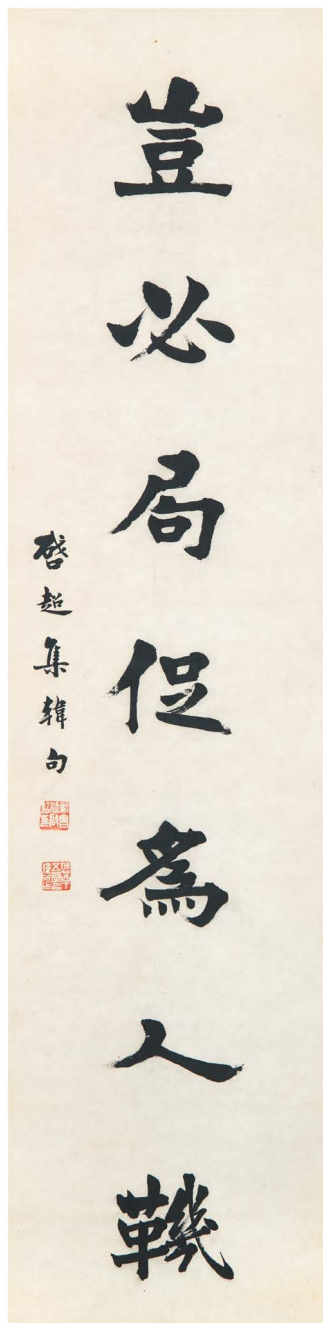 豈必局促為人鞿
啓超集韓句